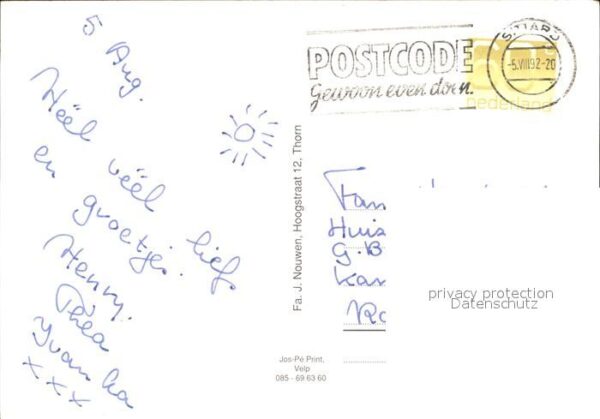 5 Aug.
Heël veël liefs
en groetjes.
Henny.
Thea
Yvanka
xxx
POSTCODE
Gewoon even doen.
SITTARD
-5.VIII.92-20
nederland
Fa. J. Nouwen, Hoogstraat 12, Thorn
Fam
Huis
G.B
Kan
Ro
privacy protection
Datenschutz
Jos-Pé Print,
Velp
085 - 69 63 60